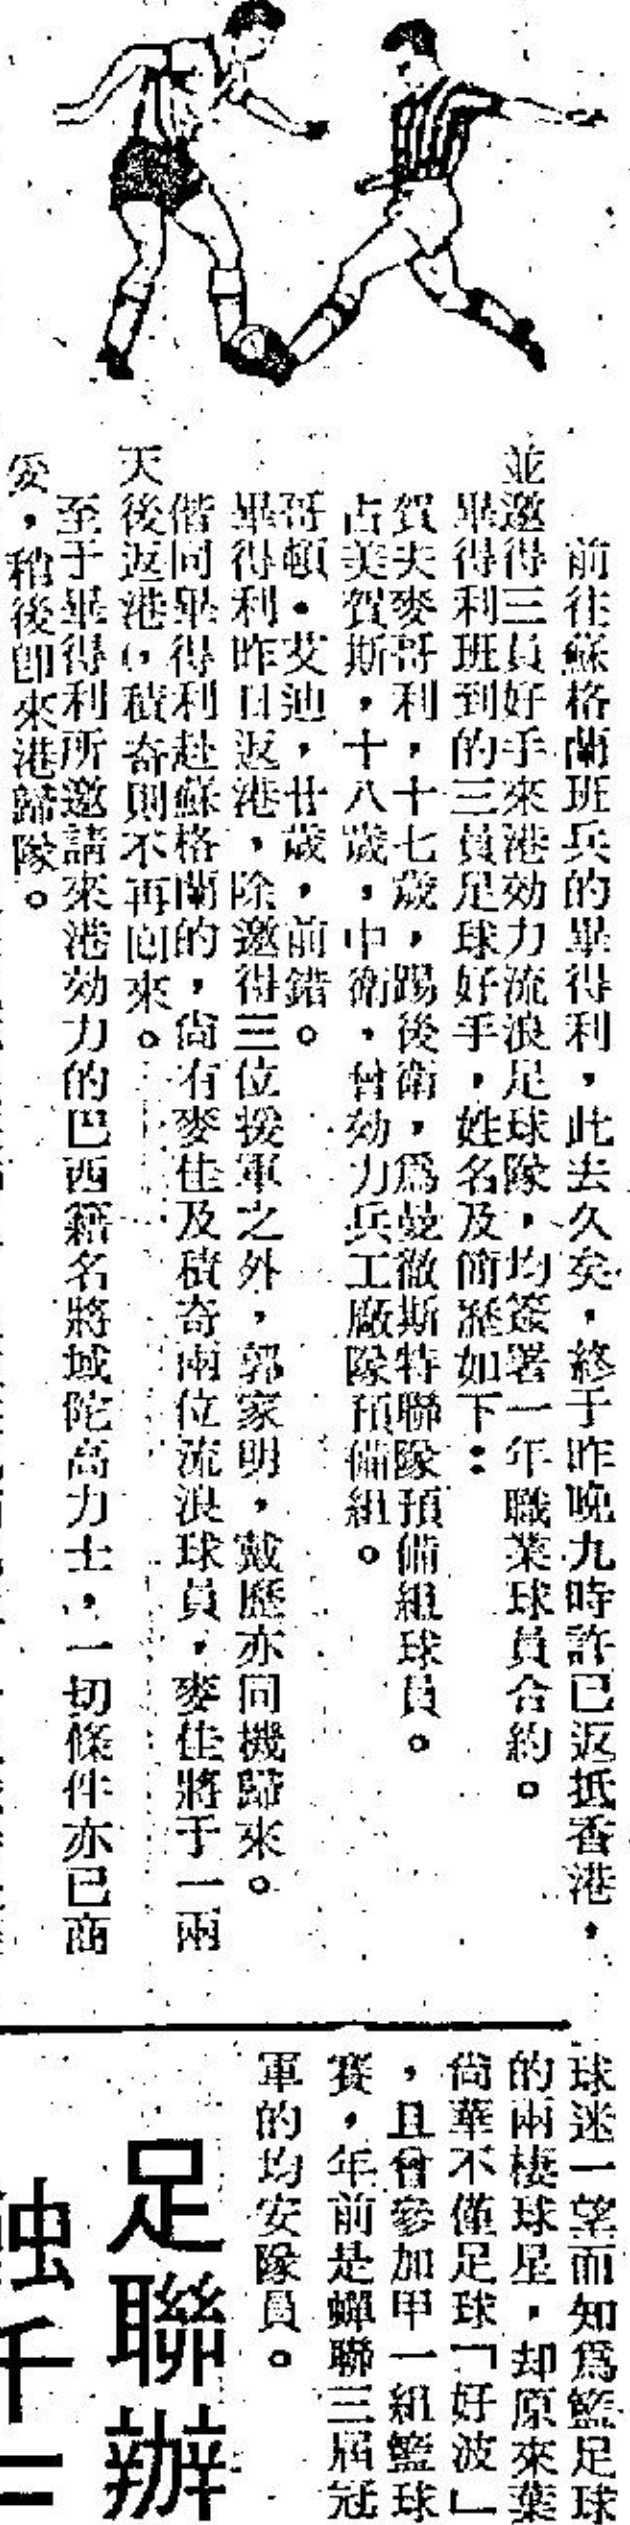 前往蘇格蘭班兵的畢得利，此去久矣，終于昨晚九時許已返抵香港，
並邀得三員好手來港効力流浪足球隊，均簽署一年職業球員合約。
畢得利班到的三員足球好手，姓名及簡歷如下：
賀夫麥哥利，十七歲，踢後衛，爲曼徹斯特聯隊預備組球員。
占美賀斯，十八歲，中衛，曾効力兵工廠隊預備組。
哥頓•艾迪，廿歲，前錯。
畢得利昨日返港，除邀得三位援軍之外，郭家明，戴歷亦同機歸來。
偕同畢得利赴蘇格蘭的，尙有麥佳及積奇兩位流浪球員，麥佳將于一兩
天後返港，積奇則不再回來。
至于畢得利所邀請來港効力的巴西籍名將域陀高力士，一切條件亦已商
妥，稍後卽來港歸隊。
球迷一望而知爲籃足球
的兩棲球星，却原來葉
尙華不僅足球「好波」
，且曾參加甲一組籃球
賽，年前是蟬聯三屆冠
軍的均安隊員。
足聯辦
千二